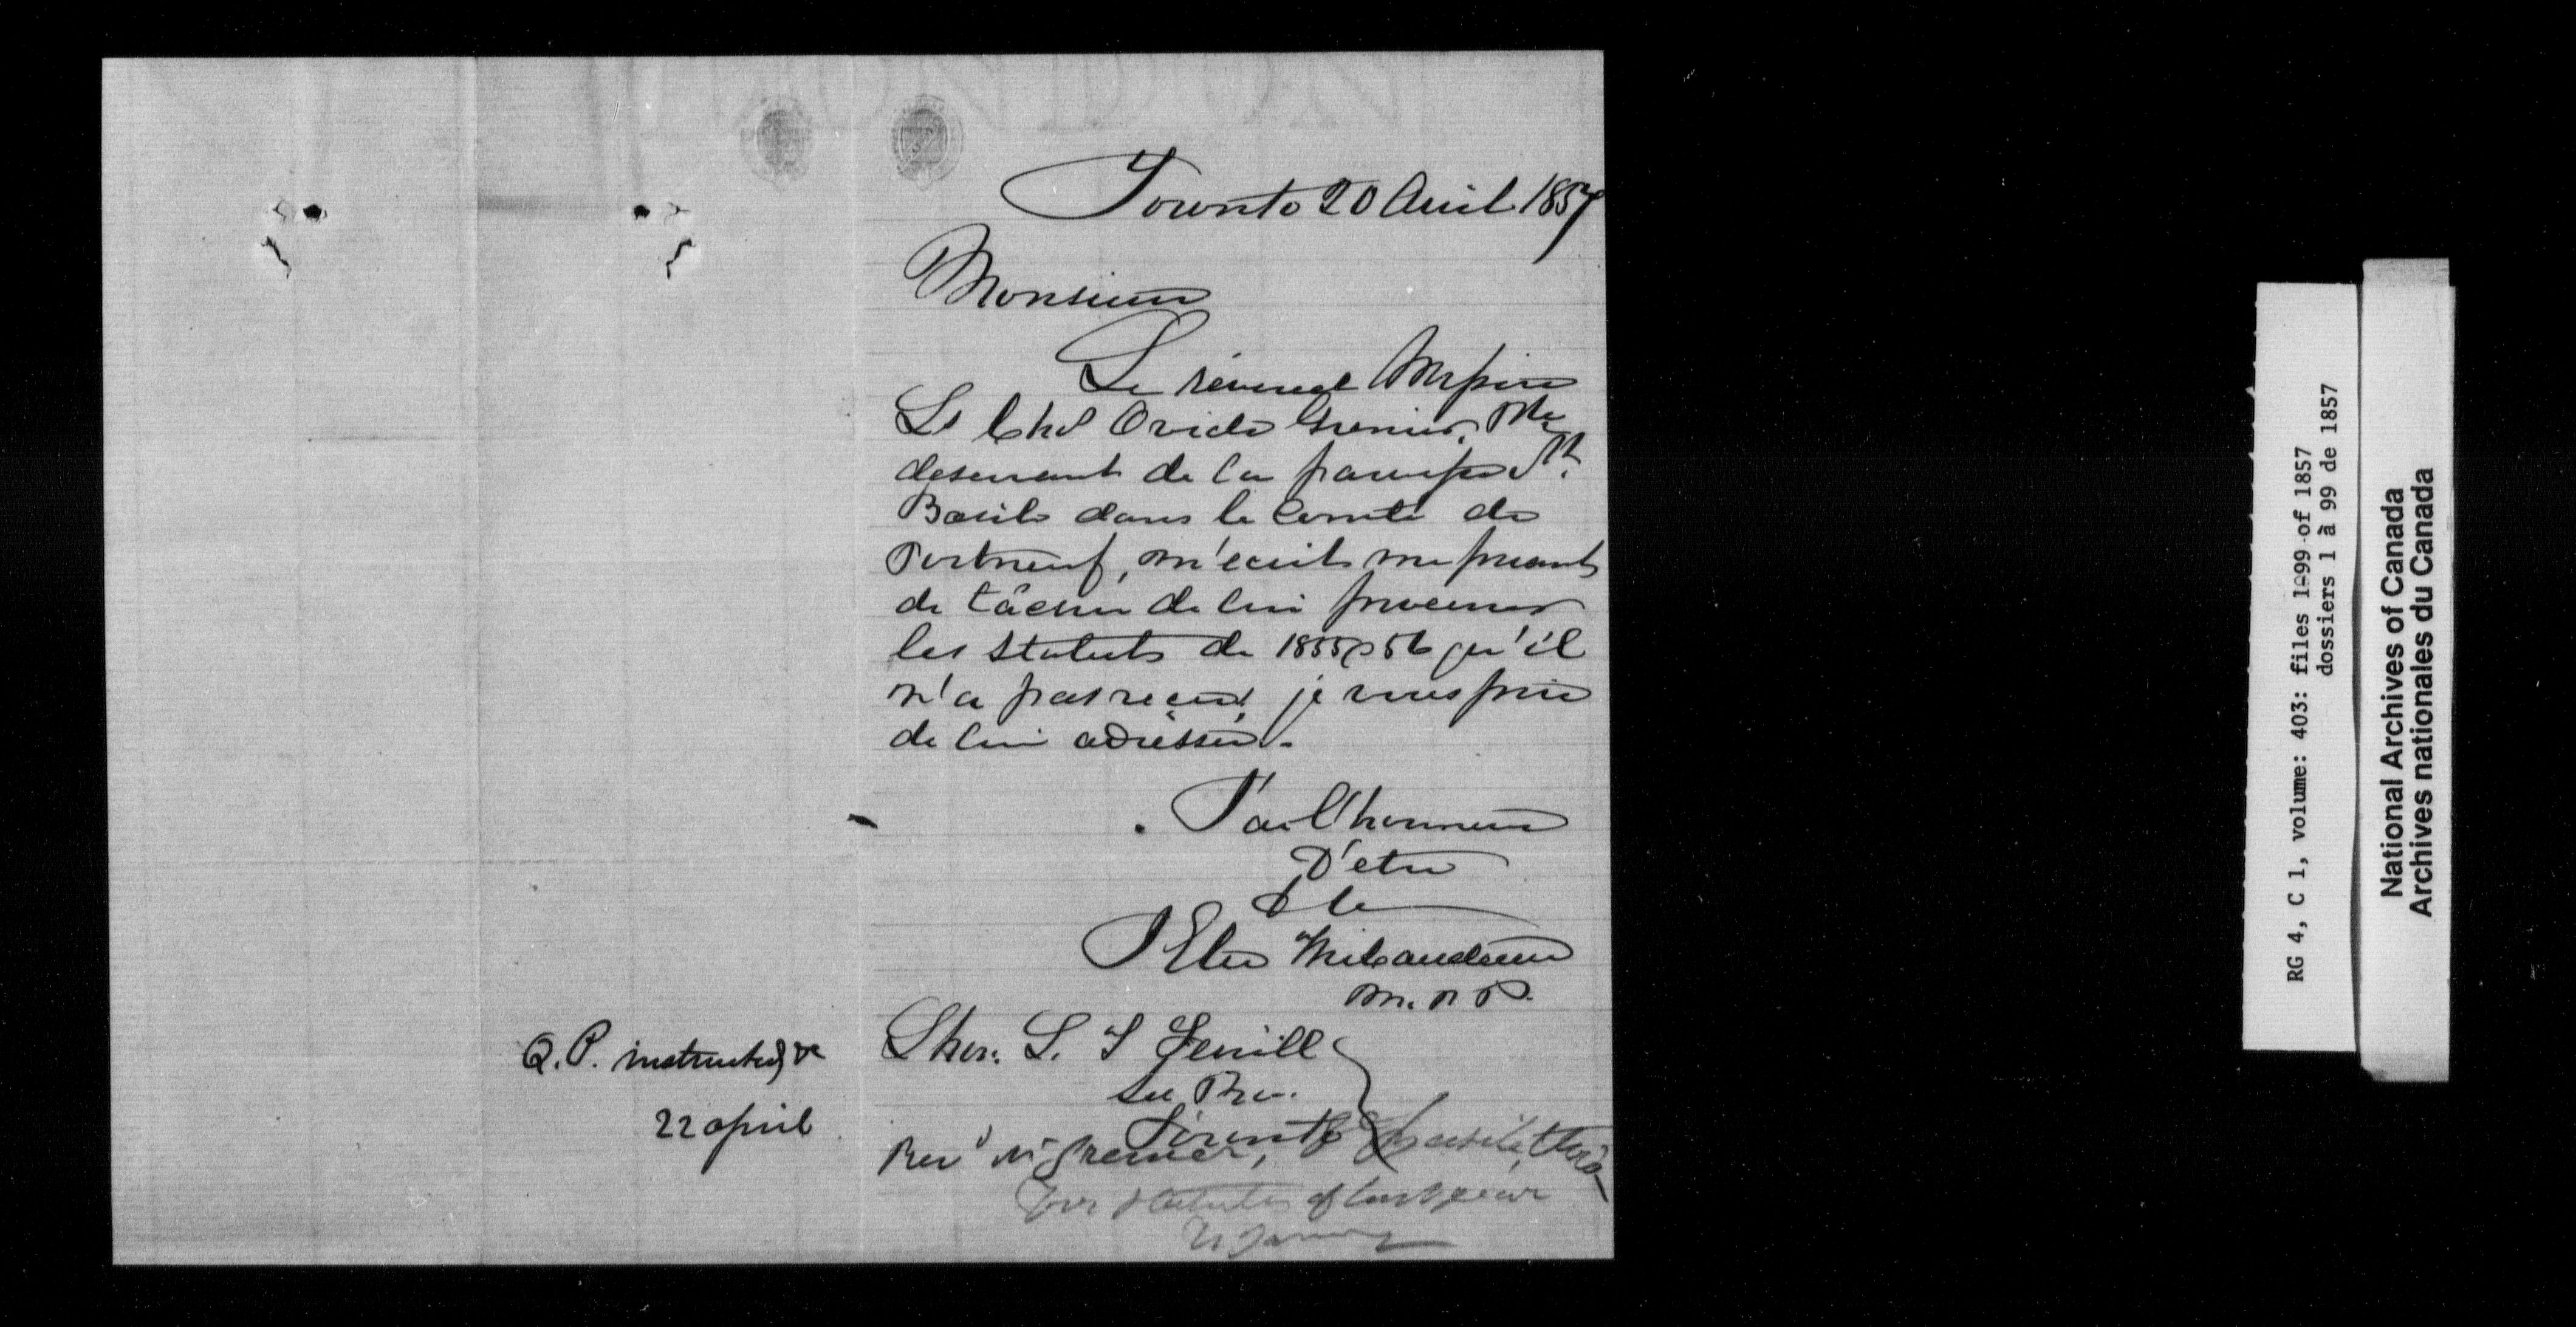 Toronto 20 Avril 1857
Monsieur
Le révérend Messire
Ls Chs Ovide Grenier, Ptre
desservant de la paroisse St.
Basile dans le Comté de
Portneuf, m'ecrit me priant
de tâcher de lui procurer
les Statuts de 1855 & 56 qu'il
n'a pas reçus, je vous prie
de lui adresser.
J'ai l'honneur
D'etre
& &c
J Elie Thibaudeau
M. P. P.
L'hon. T. L. Terrill
Sec Prov.
Toronto
Revd Mr Grenier, St Basile,
for statutes of last year
Q. P. instructed &c
22 april
RG 4, C 1, volume: 403: files 1-99 of 1857
dossiers 1 à 99 de 1857
National Archives of Canada
Archives nationales du Canada